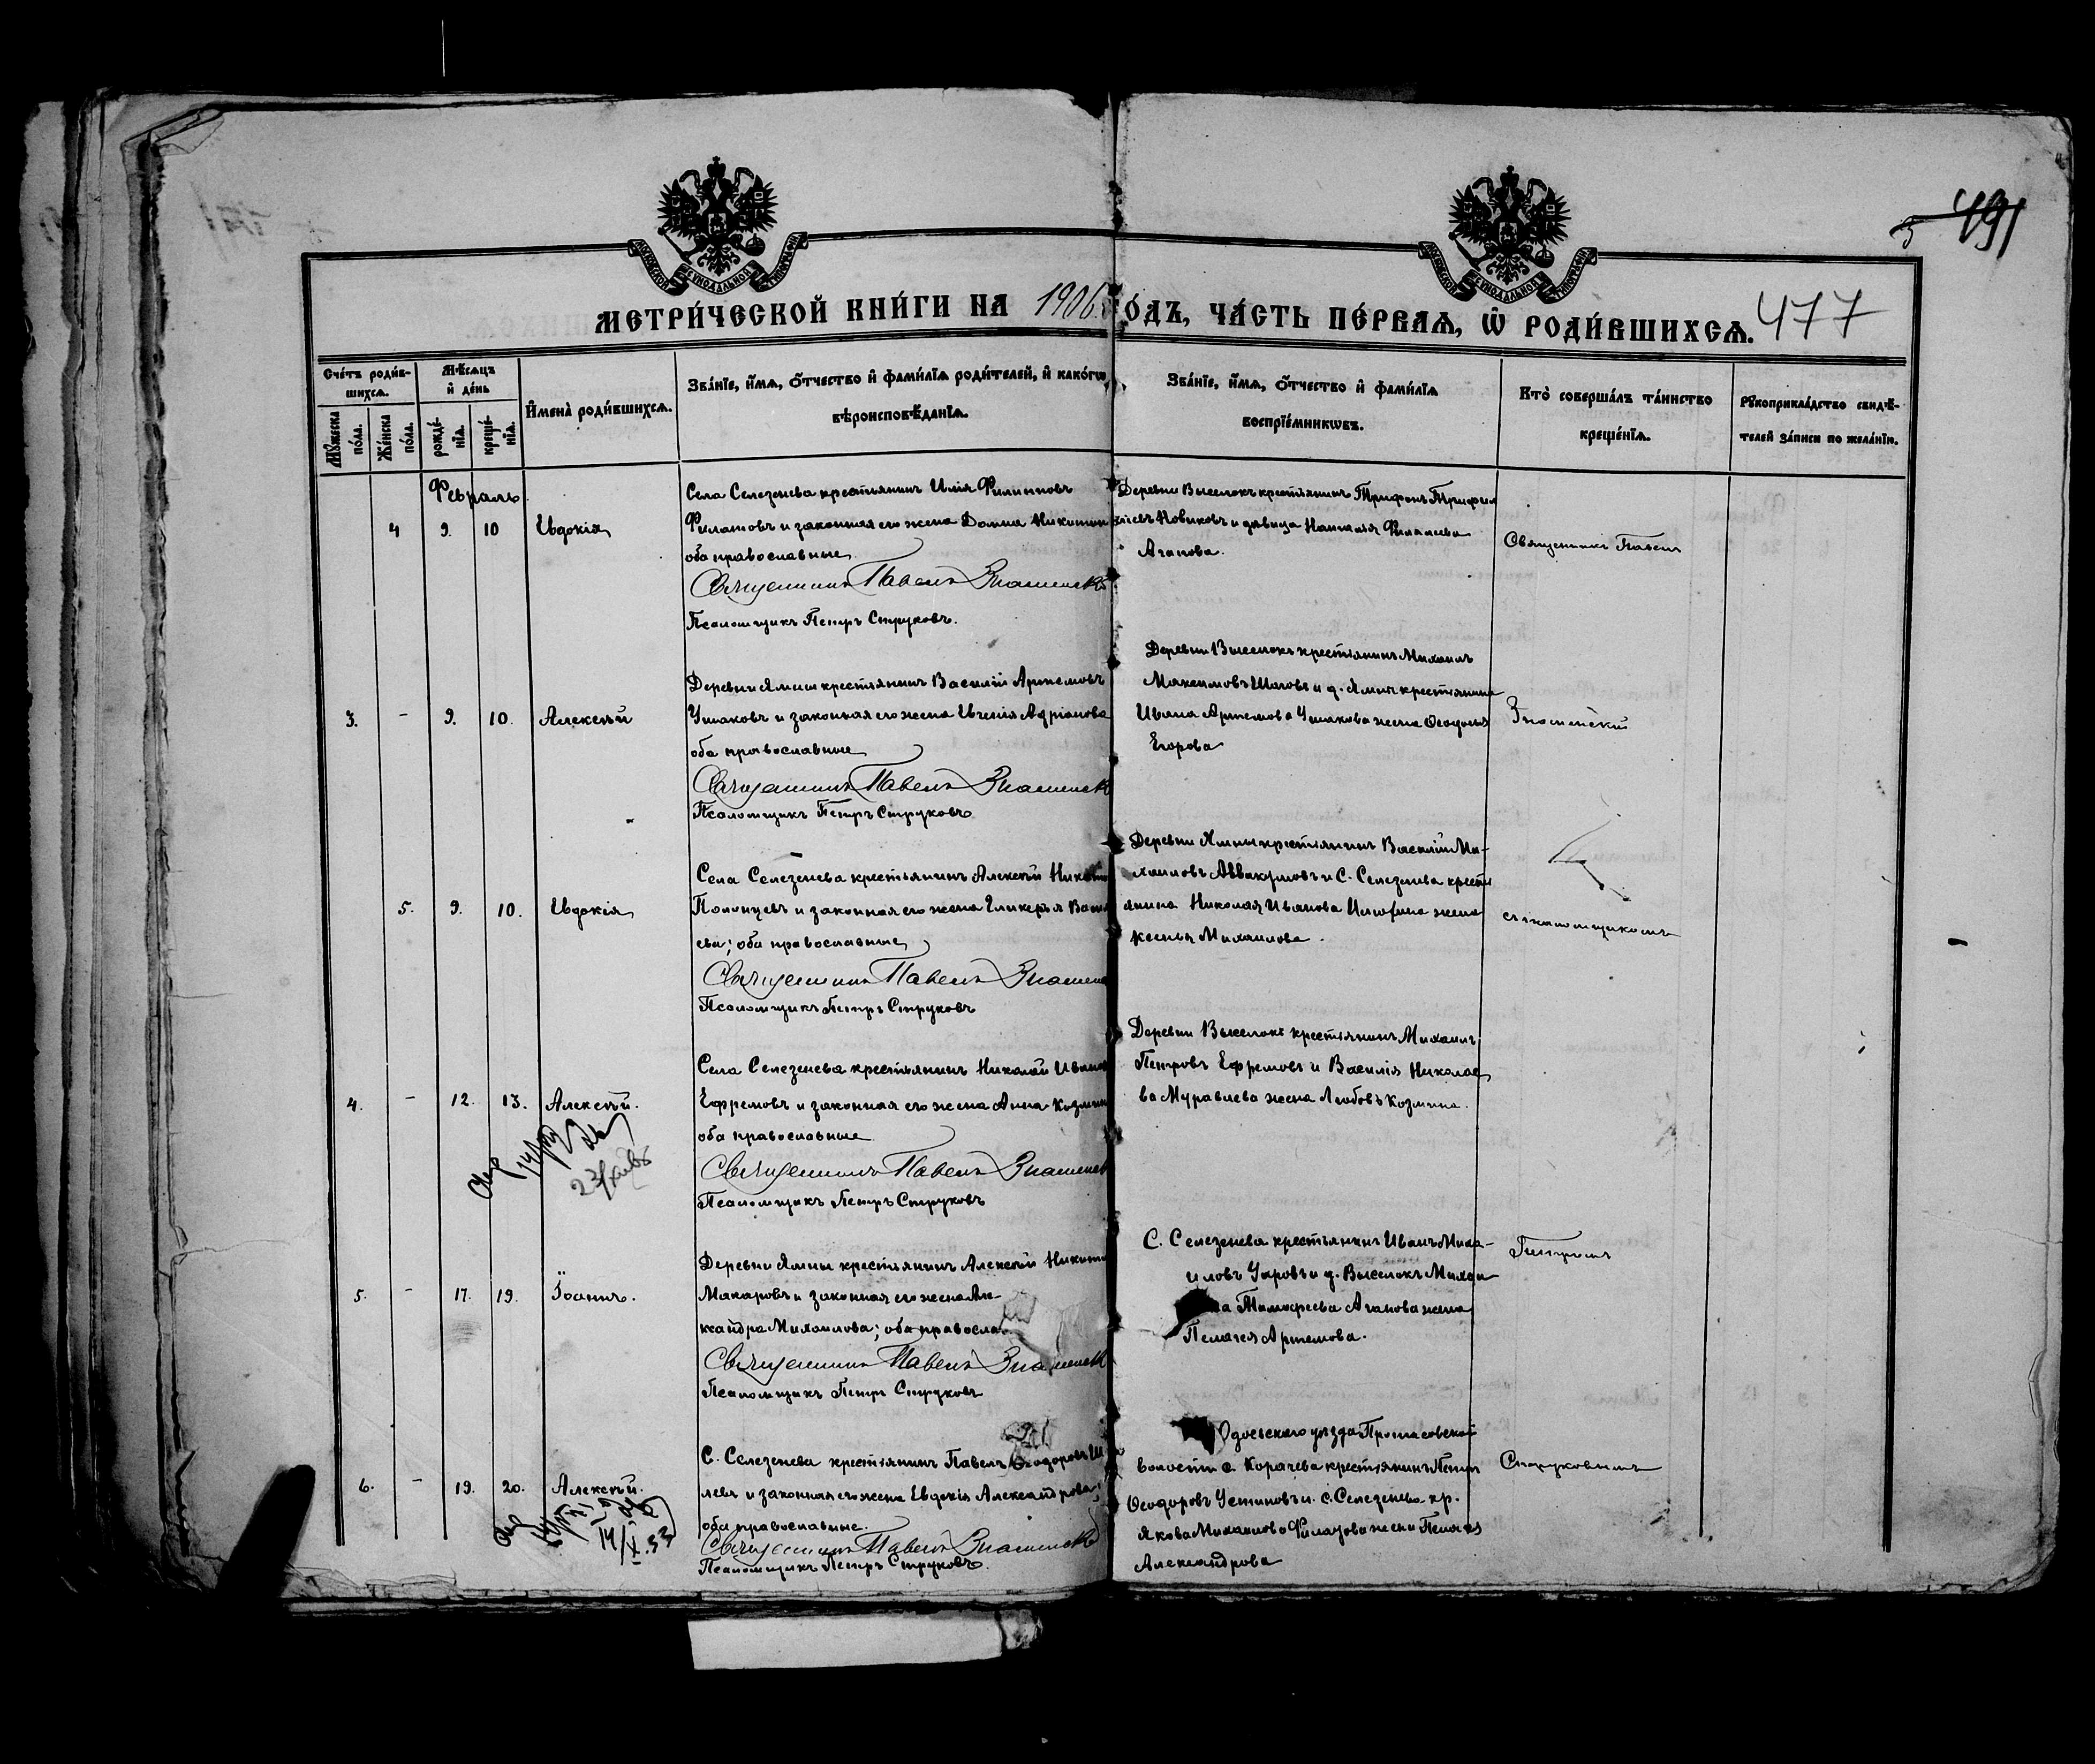 491
477
МЕТРИ́ЧЕСКОЙ КНИ́ГИ НА 1906 ГО́ДЪ, ЧА́СТЬ ПЕ́РВАЯ, Ѡ РОДИ́ВШИХСЯ.
Сче́тъ роди́в-
шихся.
Мѣ́сяцъ
и де́нь
Имена̀ роди́вшихся.
Зва́нїе, и́мя, о́тчество и фами́лїя роди́телей, и како́гѡ
вѣроисповѣ́данїя.
Зва́нїе, и́мя, о́тчество и фами́лїя
воспрїе́мникѡвъ.
Кто̀ соверша́лъ та́инство
креще́нїя.
Рꙋкоприкла́дство свидѣ́-
телей за́писи по жела́нїю.
Мꙋ́жеска по́ла.
Же́нска по́ла.
рожде́-
нїя.
креще́-
нїя.
Февраль.
4 9. 10 Евдокія
Села Селезнева крестьянинъ Илія Филипповъ
Филатовъ и законная его жена Домна Никитин
оба православные
Священникъ Павелъ Знаменскі
Псаломщикъ Петръ Струковъ.
Деревни Выселокъ крестьянинъ Трифонъ
Новиковъ и дѣвица Наталія
Агапова.
Священникъ Павелъ
3. - 9. 10. Алексѣй
Деревни Ямны крестьянинъ Василій Артемовъ
Ушаковъ и законная его жена Евгенія Адріанова
оба православные
Священникъ Павелъ Знаменск
Псаломщикъ Петръ Струковъ
Деревни Выселокъ крестьянинъ Михаилъ
Максимовъ и д. Ямны крестьянина
Ивана Артемова Ушакова жена Ѳеодосія
Егорова
Знаменскій
5. 9. 10. Евдокія
Села Селезнева крестьянинъ Алексѣй
и законная его жена Гликерья Васил
ева; оба православные
Священникъ Павелъ Знамен
Псаломщикъ Петръ Струковъ
Деревни Ямны крестьянинъ Василій Ми-
хаиловъ Аввакумовъ и С. Селезнева крестья
янина Николая Иванова жена
Ксенья Михаилова.
съ псаломщикомъ
4. - 12. 13. Алексѣй.
Села Селезнева крестьянинъ Николай Иванов
Ефремовъ и законная его жена Анна Козмин
оба православные
Священникъ Павелъ Знаменск
Псаломщикъ Петръ Струковъ
Деревни Выселокъ крестьянинъ Михаилъ
Петровъ Ефремовъ и Василія Николае
ва Муравлева жена Любовь Козмина.
5. - 17. 19. Іоаннъ.
Деревни Ямны крестьянинъ Алексѣй Никит
Макаровъ и законная его жена Але-
ксандра Михаилова; оба правосла
Священникъ Павелъ Знаменск
Псаломщикъ Петръ Струковъ
С. Селезнева крестьянинъ Иванъ Миха-
иловъ и д. Выселокъ Михаи
ла Тимофеева Агапова жена
Пелагея Артемова.
Петромъ
6. - 19. 20. Алексѣй.
14/X.53
С. Селезнева крестьянинъ Павелъ Ѳеодоровъ
левъ и законная его жена Евдокія Александрова;
оба православные.
Священникъ Павелъ Знаменскі
Псаломщикъ Петръ Струковъ.
Одоевскаго уѣзда Протасовской
волости с. Корачева крестьянинъ Петръ
Ѳеодоровъ Устиновъ и с. Селезнева кр.
Якова Михаилова Филатова жена Пелагея
Александрова
Струковымъ